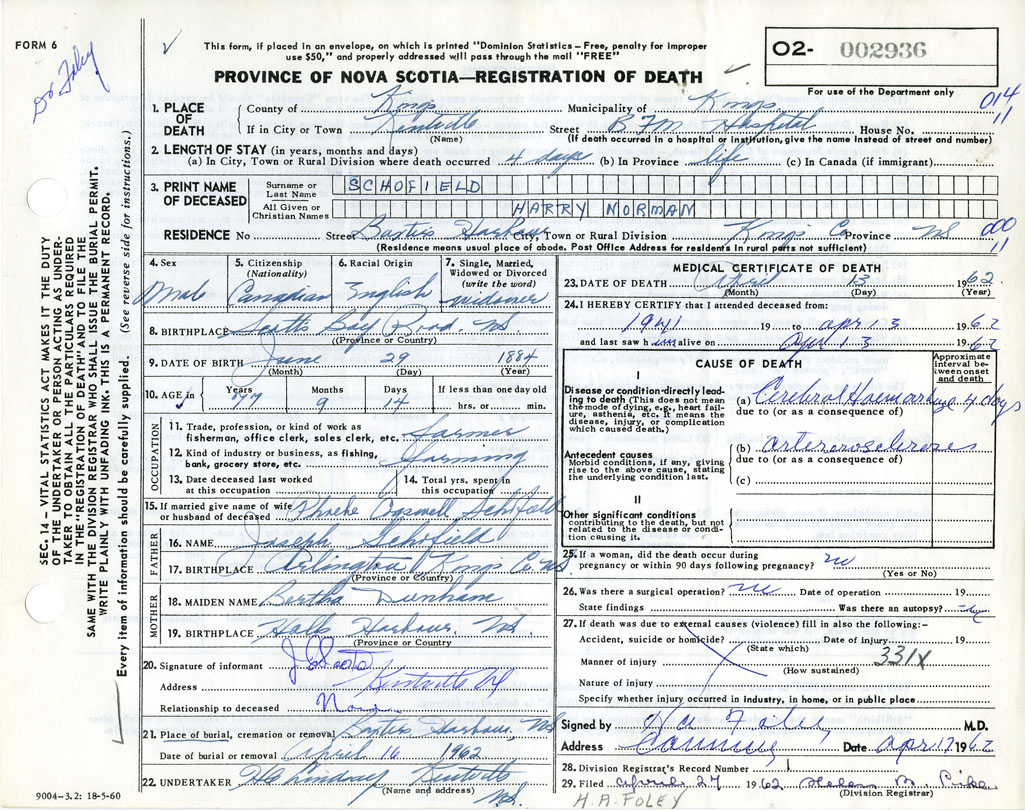 FORM 6
Dr Foley
This form, if placed in an envelope, on which is printed "Dominion Statistics – Free, penalty for improper
use $50," and properly addressed will pass through the mail "FREE"
PROVINCE OF NOVA SCOTIA—REGISTRATION OF DEATH
O2- 002936
For use of the Department only
014
11
1. PLACE OF DEATH
County of Kings Municipality of Kings
If in City or Town Kentville Street B F M Hospital House No.
(Name) (If death occurred in a hospital or institution, give the name instead of street and number)
2. LENGTH OF STAY (in years, months and days)
(a) In City, Town or Rural Division where death occurred 4 days (b) In Province life (c) In Canada (if immigrant)
3. PRINT NAME OF DECEASED
Surname or Last Name SCHOFIELD
All Given or Christian Names HARRY NORMAN
RESIDENCE No Street Baxters Harbour City, Town or Rural Division Kings Co Province NS
000
11
(Residence means usual place of abode. Post Office Address for residents in rural parts not sufficient)
4. Sex
Male
5. Citizenship (Nationality)
Canadian
6. Racial Origin
English
7. Single, Married, Widowed or Divorced (write the word)
widower
8. BIRTHPLACE Scotts Bay Road, NS
(Province or Country)
9. DATE OF BIRTH June 29 1884
(Month) (Day) (Year)
10. AGE in Years 77 Months 9 Days 14 If less than one day old
hrs. or min.
OCCUPATION
11. Trade, profession, or kind of work as
fisherman, office clerk, sales clerk, etc. farmer
12. Kind of industry or business, as fishing,
bank, grocery store, etc. farming
13. Date deceased last worked at this occupation
14. Total yrs. spent in this occupation
15. If married give name of wife
or husband of deceased Phoebe Cogswell Schofield
FATHER
16. NAME Joseph Schofield
17. BIRTHPLACE Arlington Kings Co. NS
(Province or Country)
MOTHER
18. MAIDEN NAME Bertha Dunham
19. BIRTHPLACE Halls Harbour, NS.
(Province or Country
20. Signature of informant
Address Kentville NS
Relationship to deceased None
21. Place of burial, cremation or removal Baxters Harbour, NS
Date of burial or removal April 16 1962
22. UNDERTAKER H C Lindsay Kentville
(Name and address) NS.
MEDICAL CERTIFICATE OF DEATH
23. DATE OF DEATH April 13 1962
(Month) (Day) (Year)
24. I HEREBY CERTIFY that I attended deceased from:
1941 19 to apr 13 1962
and last saw him alive on apr 13 1962
CAUSE OF DEATH
Approximate interval between onset and death
I
Disease or condition directly leading to death (This does not mean
the mode of dying, e.g., heart failure, asthenia, etc. It means the
disease, injury, or complication
which caused death.)
(a) Cerebral Haemorrhage 4 days
due to (or as a consequence of)
Antecedent causes
Morbid conditions, if any, giving
rise to the above cause, stating
the underlying condition last.
(b) arteriosclerosis
due to (or as a consequence of)
(c)
II
Other significant conditions
contributing to the death, but not
related to the disease or condition causing it.
25. If a woman, did the death occur during
pregnancy or within 90 days following pregnancy? no
(Yes or No)
26. Was there a surgical operation? no Date of operation 19
State findings Was there an autopsy? no
27. If death was due to external causes (violence) fill in also the following:-
Accident, suicide or homicide? Date of injury 19
(State which)
Manner of injury 331X
(How sustained)
Nature of injury
Specify whether injury occurred in industry, in home, or in public place
Signed by H A Foley M.D.
Address Canning Date apr 17 1962
28. Division Registrar's Record Number
29. Filed April 27 1962 Helen B. Pike
(Division Registrar)
H.A. FOLEY
SEC. 14 – VITAL STATISTICS ACT MAKES IT THE DUTY
OF THE UNDERTAKER OR PERSON ACTING AS UNDERTAKER TO OBTAIN ALL THE PARTICULARS REQUIRED
IN THE "REGISTRATION OF DEATH" AND TO FILE THE
SAME WITH THE DIVISION REGISTRAR WHO SHALL ISSUE THE BURIAL PERMIT.
WRITE PLAINLY WITH UNFADING INK. THIS IS A PERMANENT RECORD.
Every item of information should be carefully supplied. (See reverse side for instructions.)
9004-3.2: 18-5-60